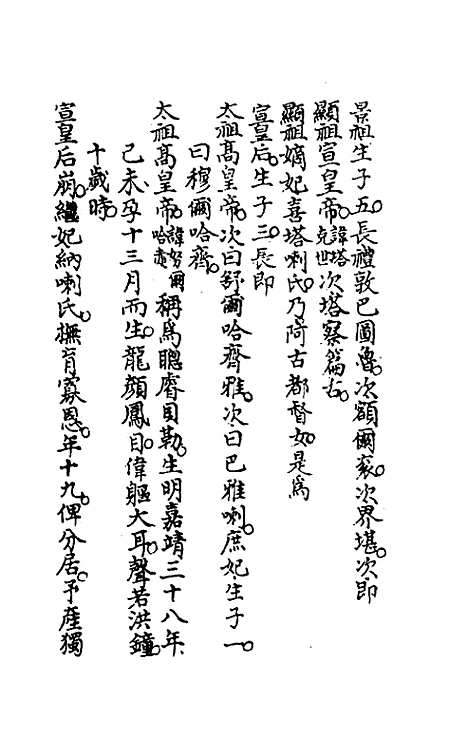 景祖生子五。長禮敦巴圖魯。次額爾袞。次界堪。次即
顯祖宣皇帝。諱塔克世次塔察篇古。
顯祖嫡妃喜塔喇氏。乃阿古都督女。是爲
宣皇后。生子三。長即
太祖高皇帝。次曰舒爾哈齊雅。次曰巴雅喇。庶妃生子一。
曰穆爾哈齊。
太祖高皇帝。諱努爾哈赤稱爲聰睿貝勒。生明嘉靖三十八年。
己未孕十三月而生。龍顏鳳目。偉軀大耳。聲若洪鐘。
十歲時。
宣皇后崩。繼妃納喇氏。撫育寡恩。年十九。俾分居。予産獨